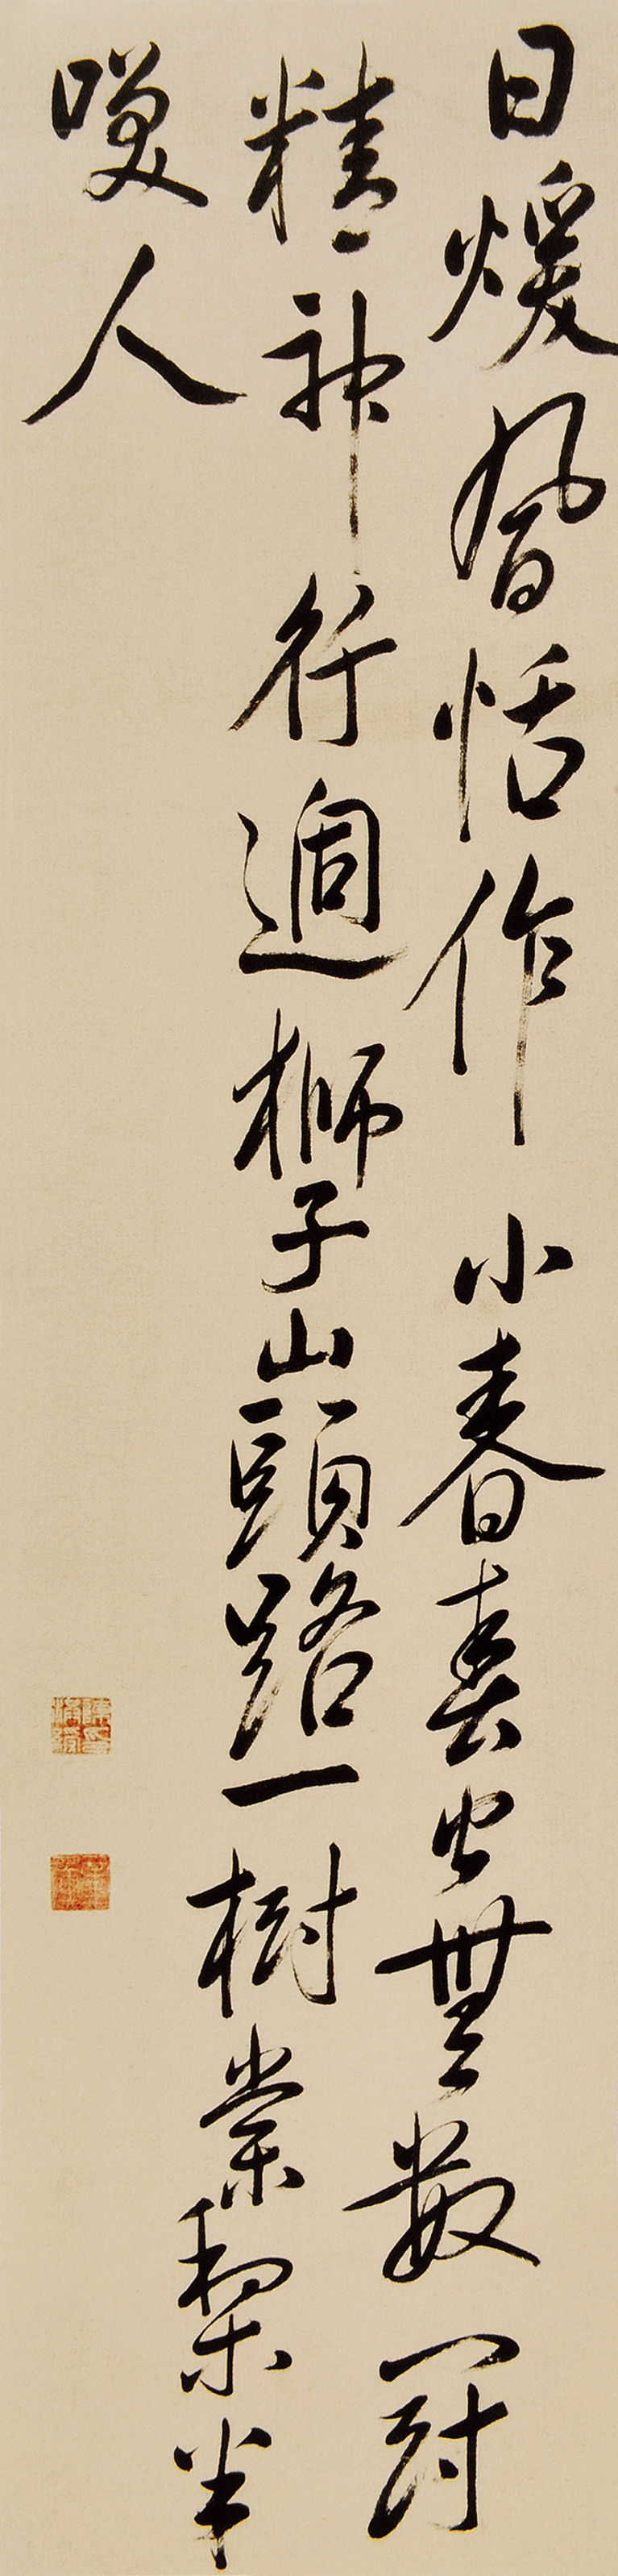 日煖風恬作小春無數鬪
精神行過獅子山頭路一樹棠梨半
笑人